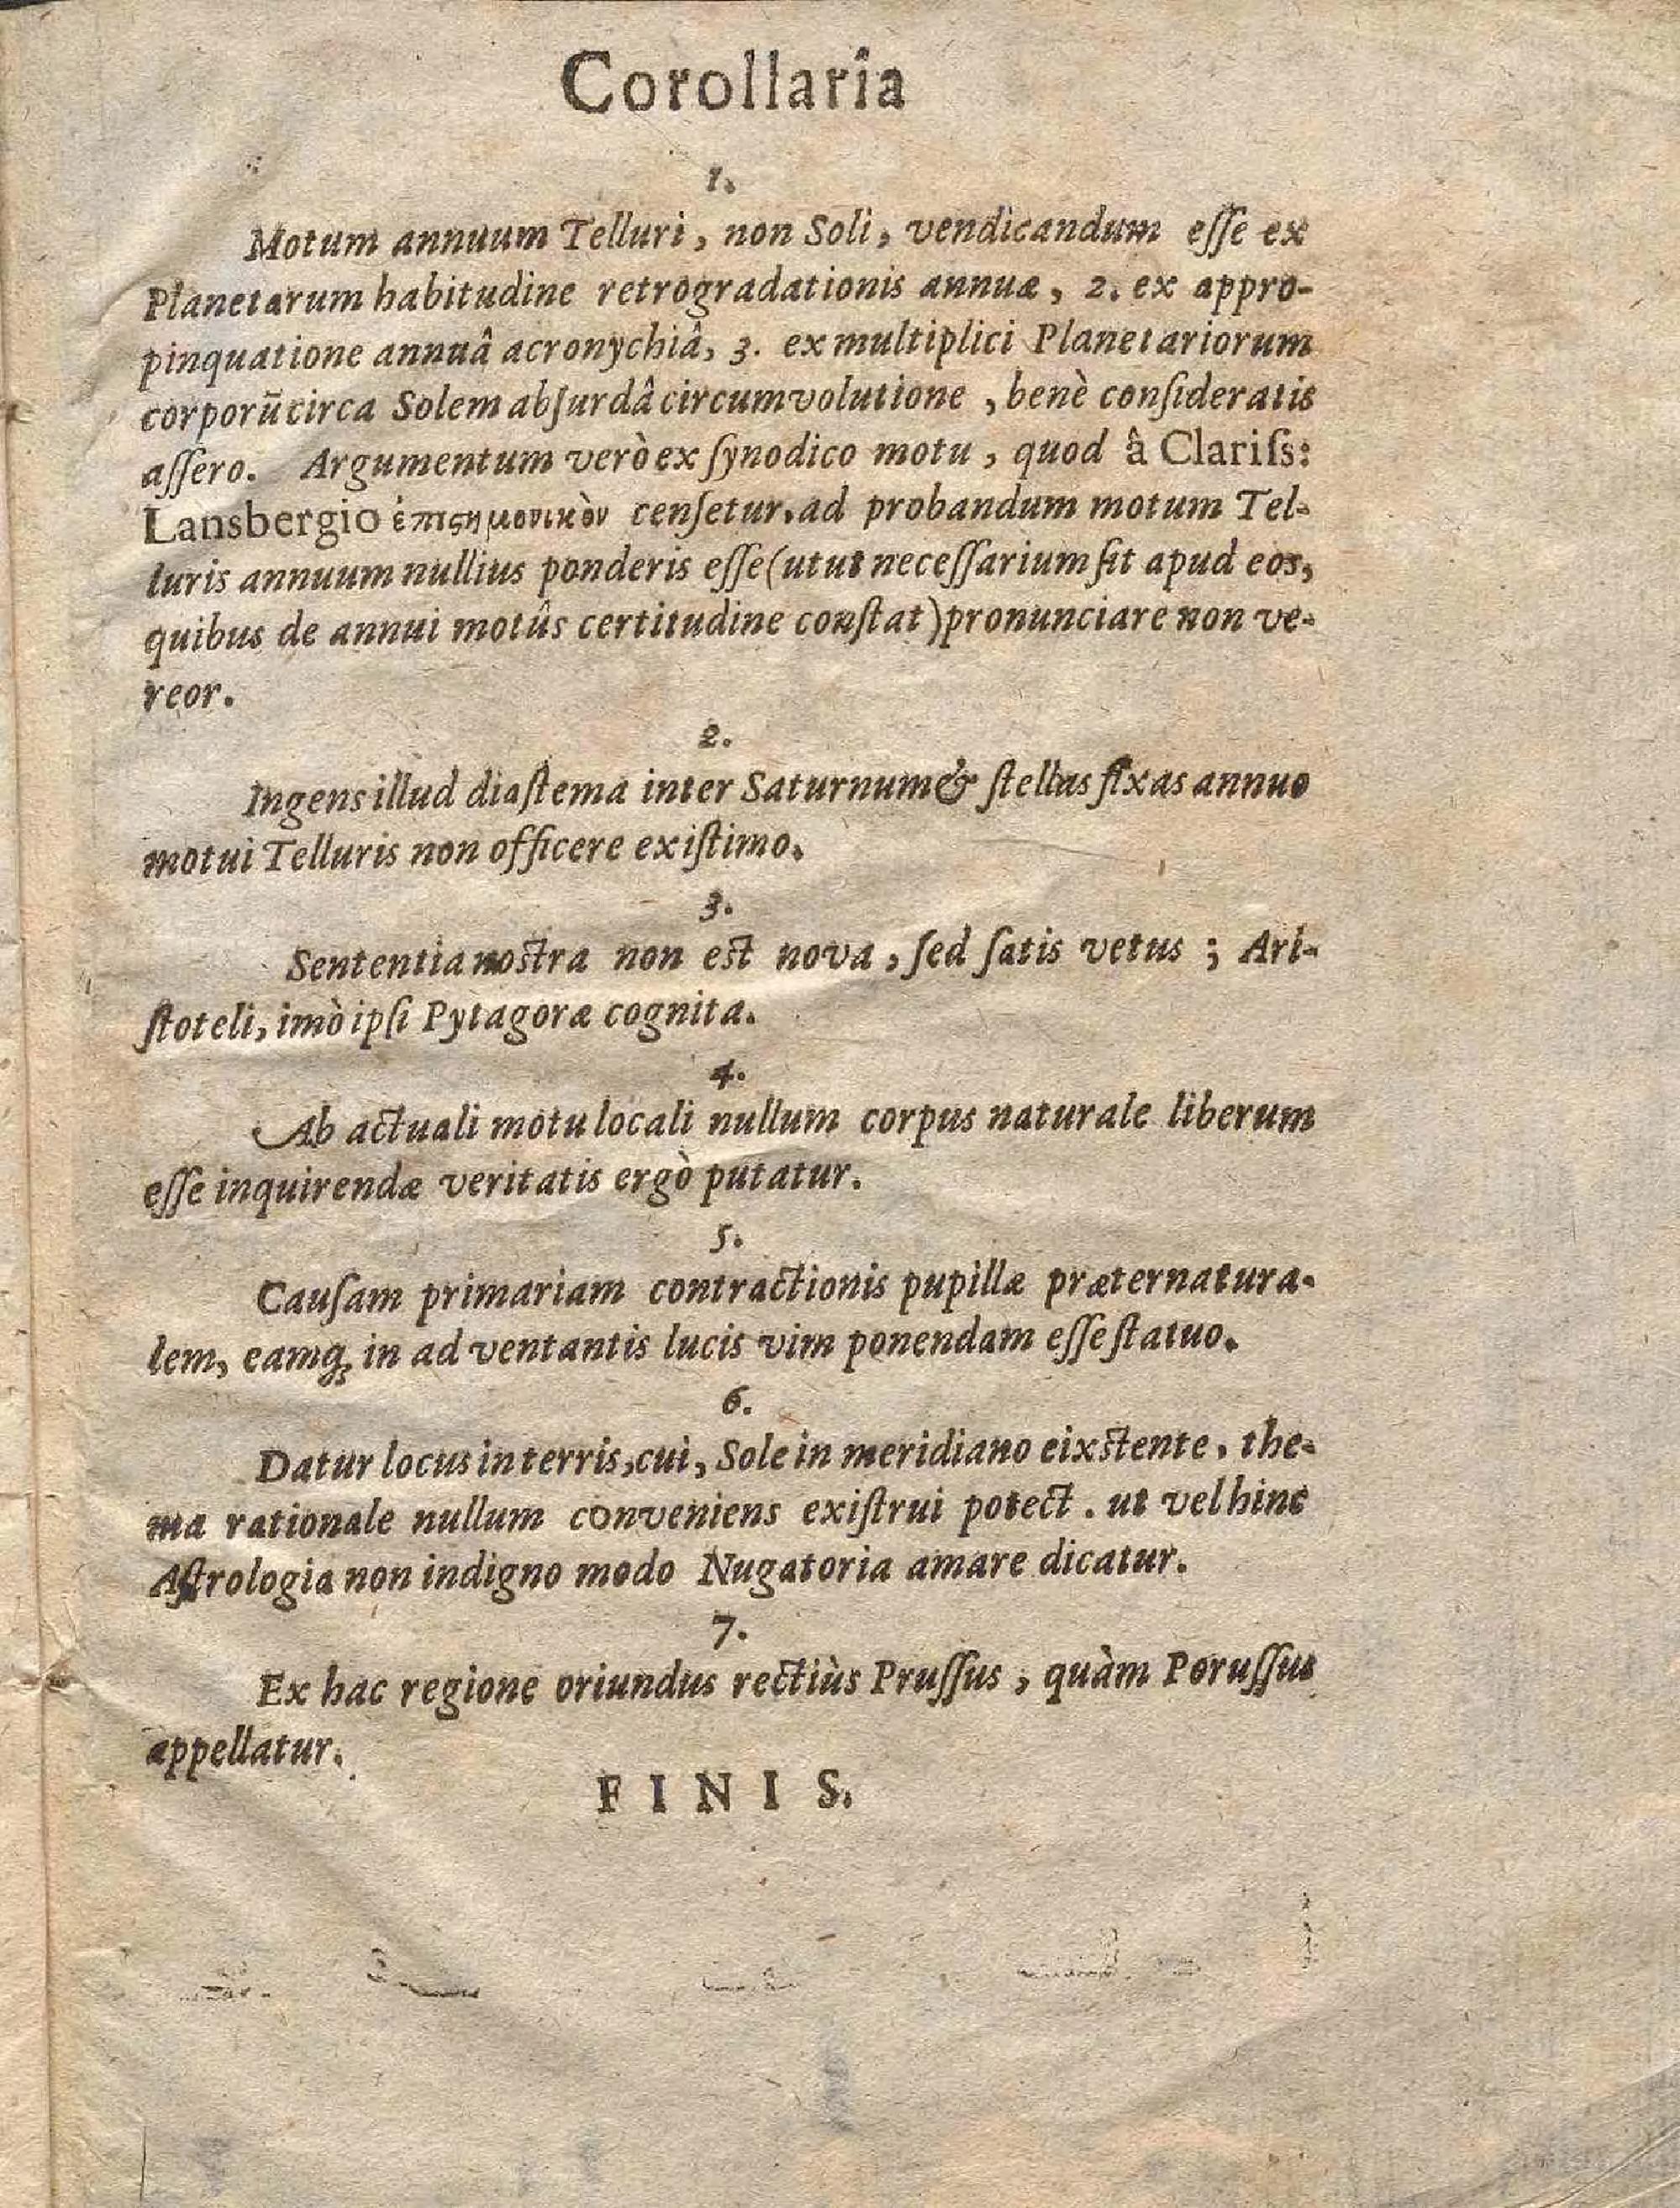 Corollaria
1.
Motum annuum Telluri, non Soli, vendicandum eſſe ex
Planetarum habitudine retrogradationis annuæ, 2. ex appro-
pinquatione annuâ acronychiâ, 3. ex multiplici Planetariorum
corporũ circa Solem abſurdâ circumvolutione, benè conſideratis
aſſero. Argumentum verò ex ſynodico motu, quod â Clariſs:
Lansbergio ἐπιϛημονικὸν cenſetur, ad probandum motum Tel-
luris annuum nullius ponderis eſſe (utut neceſſarium ſit apud eos,
quibus de annui motûs certitudine conſtat) pronunciare non ve-
reor.
2.
Ingens illud diaſtema inter Saturnum & ſtellas fixas annuo
motui Telluris non officere exiſtimo.
3.
Sententia nostra non est nova, ſed ſatis vetus ; Ari-
ſtoteli, imò ipſi Pytagoræ cognita.
4.
Ab actuali motu locali nullum corpus naturale liberum
eſſe inquirendæ veritatis ergò putatur.
5.
Cauſam primariam contractionis pupillæ præternatura-
lem, eamq; in adventantis lucis vim ponendam eſſe ſtatuo.
6.
Datur locus in terris, cui, Sole in meridiano eixstente, the-
ma rationale nullum conveniens exiſtrui potect. ut vel hinc
Aſtrologia non indigno modo Nugatoria amare dicatur.
7.
Ex hac regione oriundus rectiùs Pruſſus, quàm Poruſſus
appellatur.
FINIS.